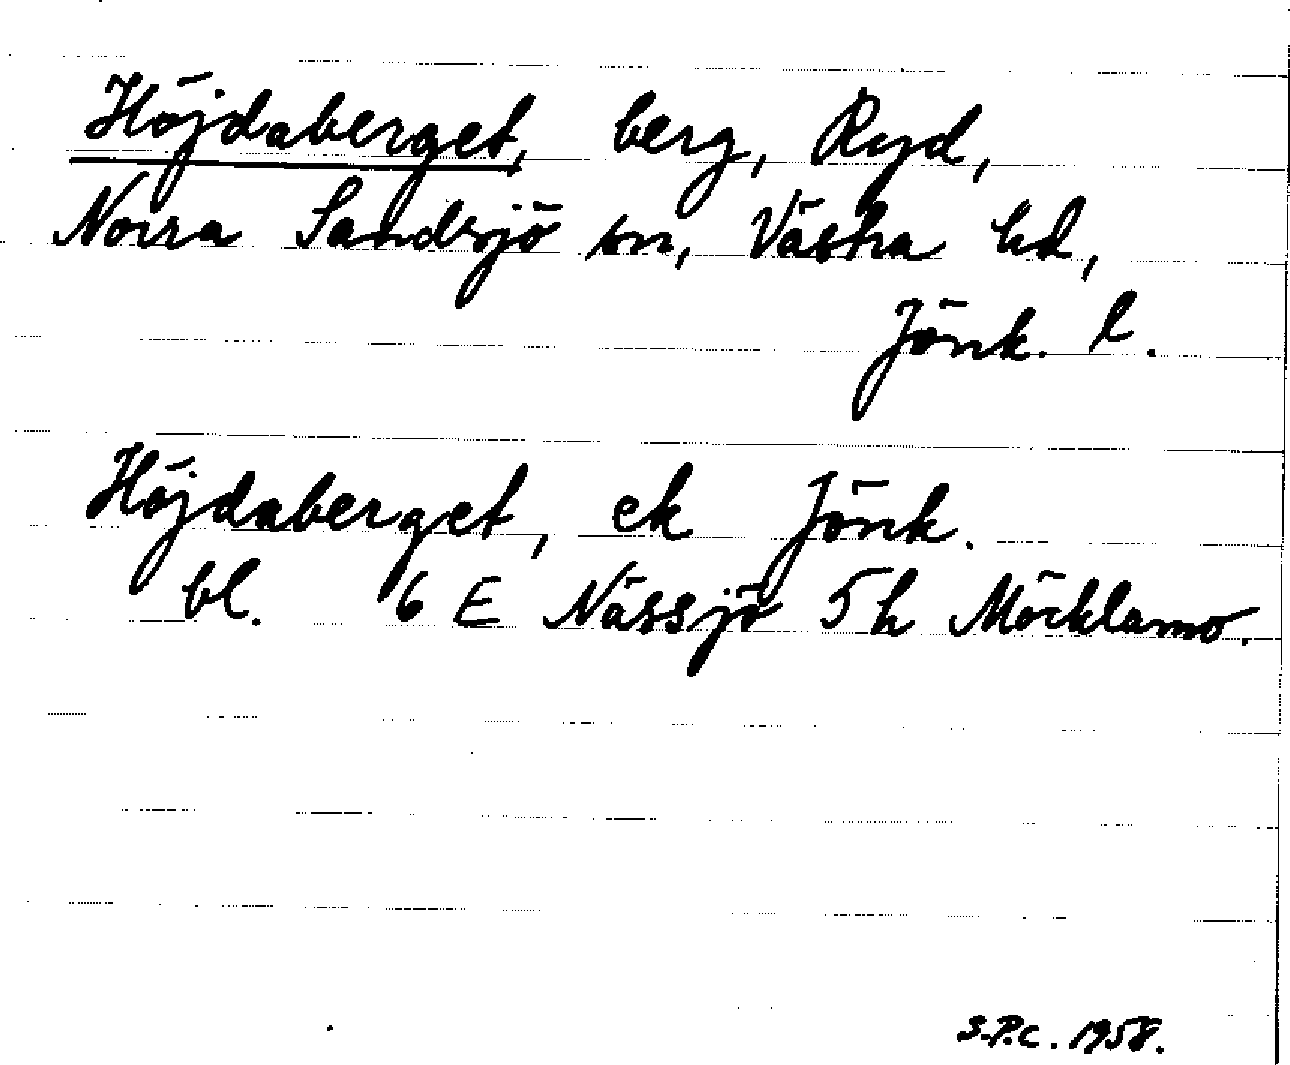 Höjdaberget, berg, Ryd,
Norra Sandsjö sn, Västra hd,
Jönk. l.
Höjdaberget, ek Jönk.
bl. 6 E Nässjö 5h Möcklamo.
S.P.C. 1958.